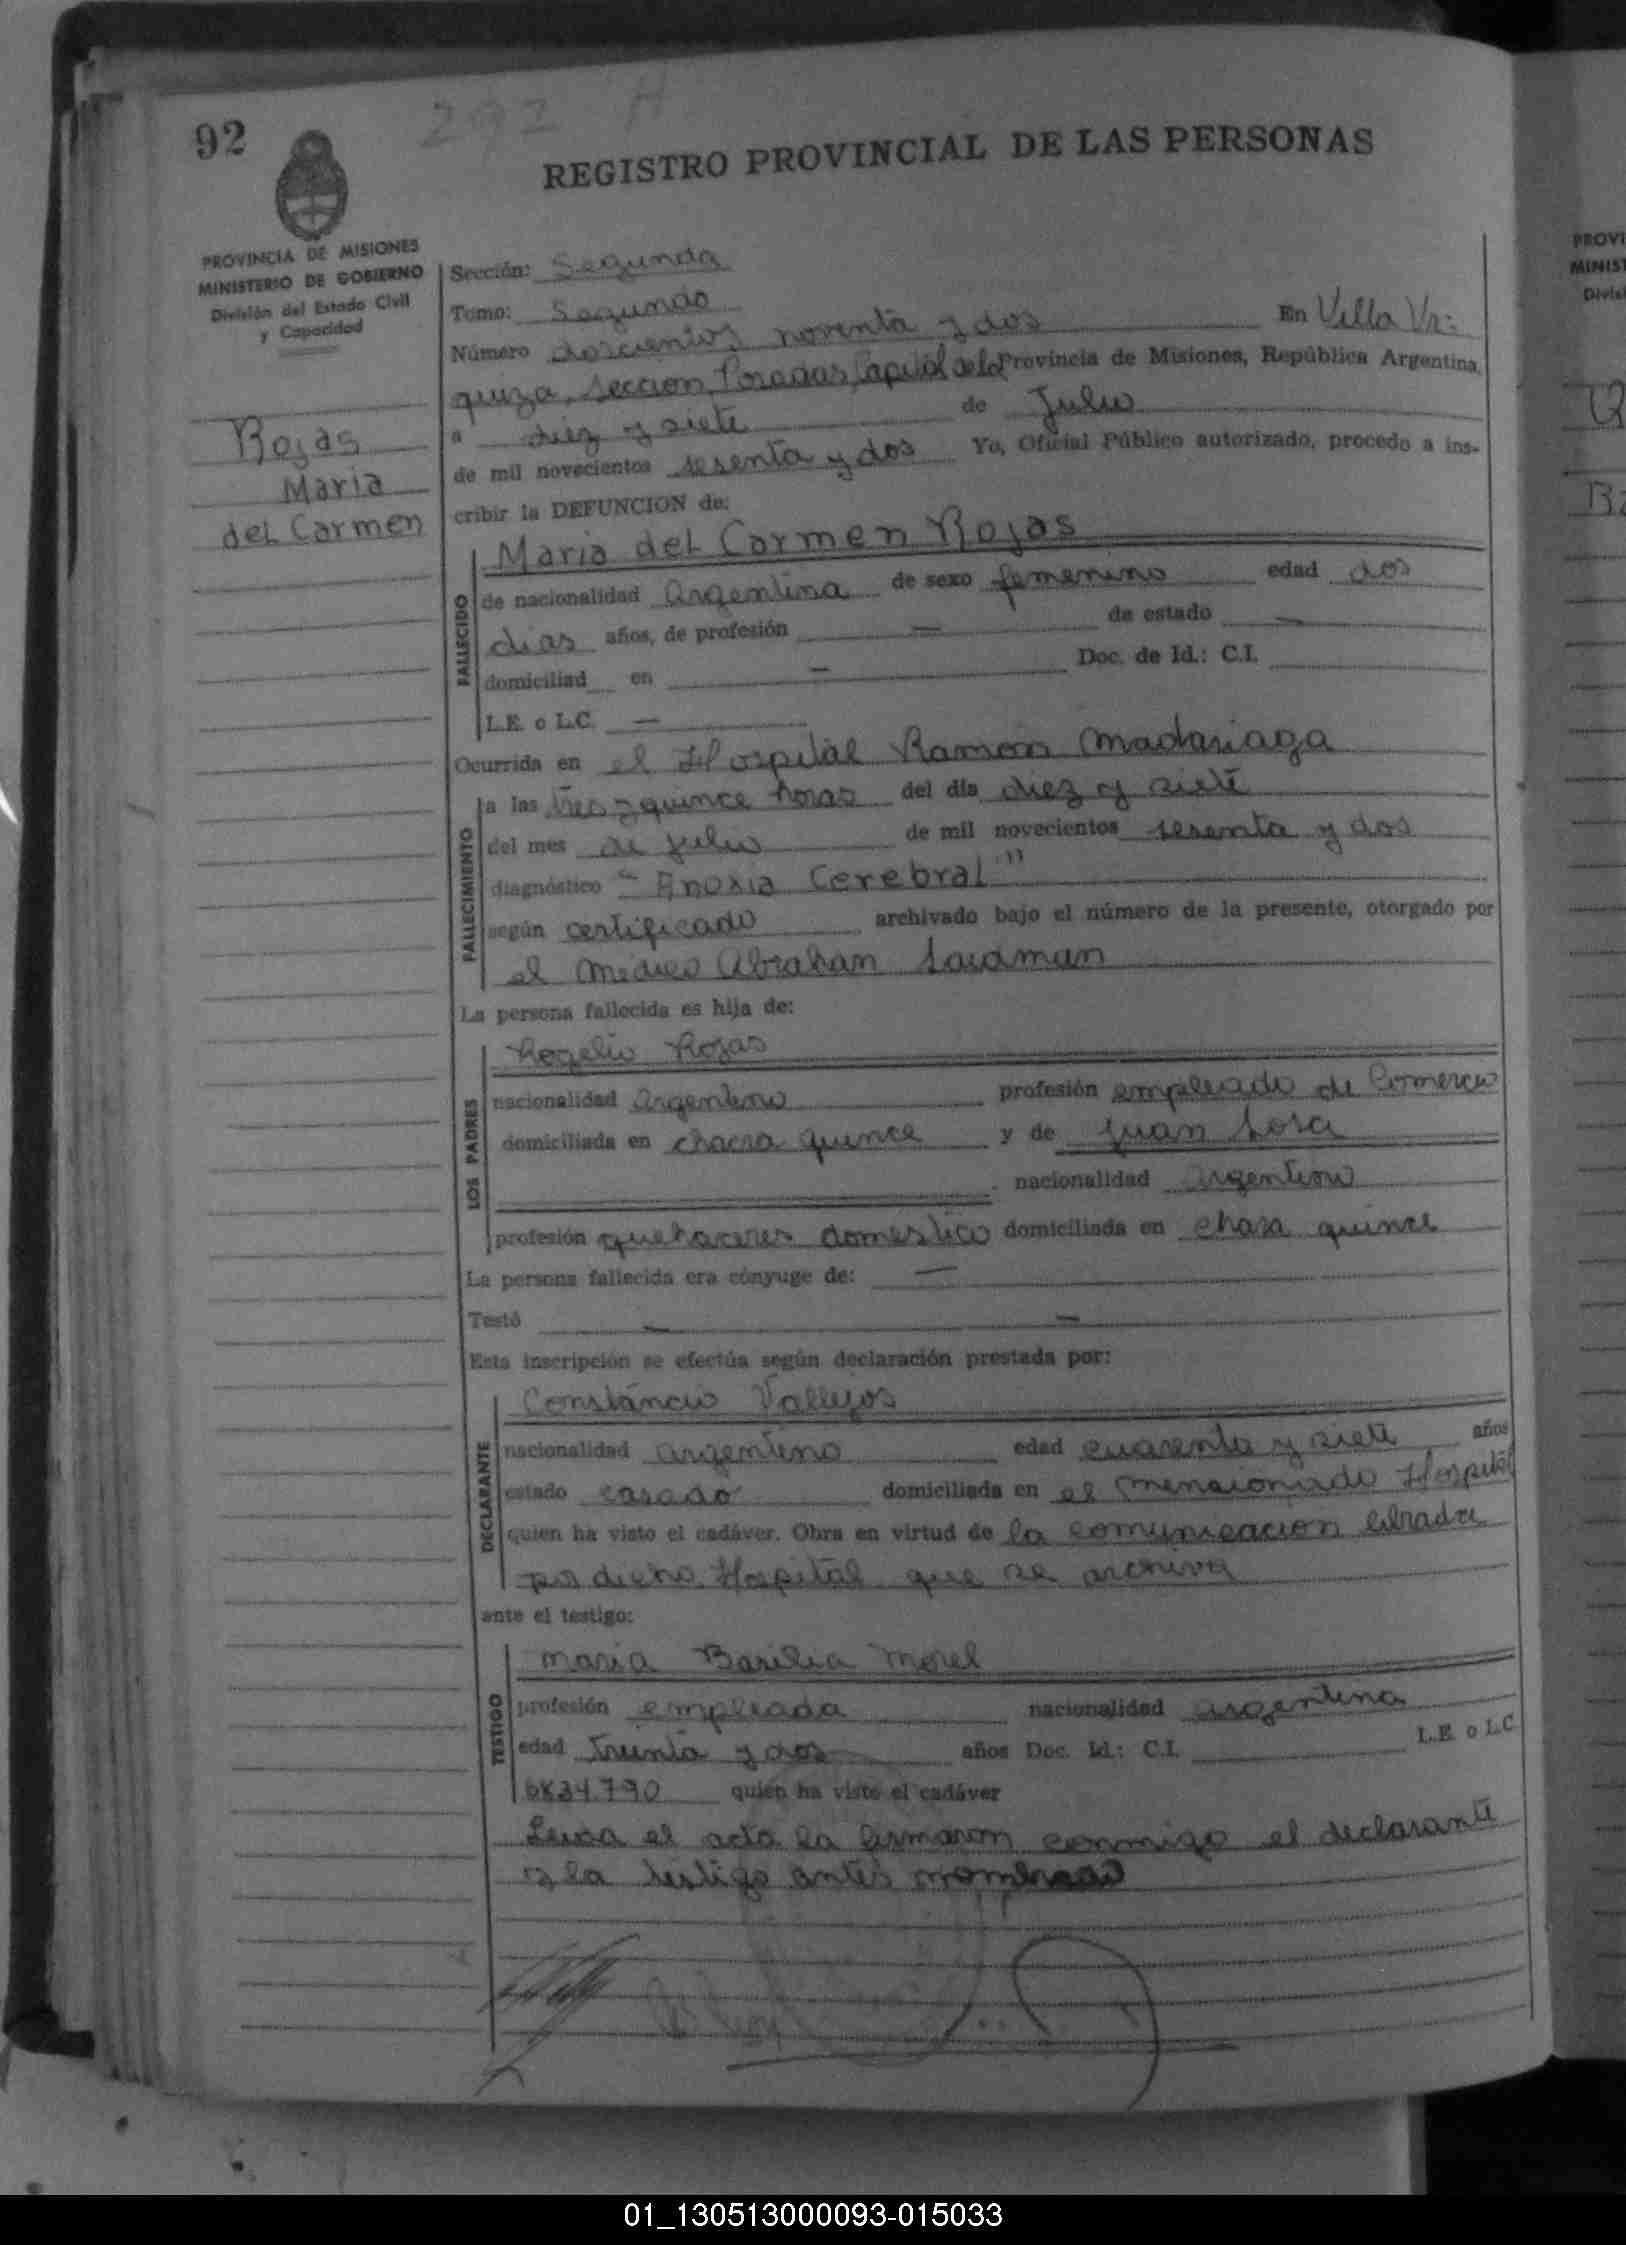 92
292 A
REGISTRO PROVINCIAL DE LAS PERSONAS
PROVINCIA DE MISIONES
MINISTERIO DE GOBIERNO
División del Estado Civil
y Capacidad
Rojas
Maria
del Carmen
Sección: Segunda
Tomo: Segundo
Número doscientos noventa y dos En Villa Ur:
quiza, Seccion Posadas, Capital de la Provincia de Misiones, República Argentina,
a diez y siete de Julio
de mil novecientos sesenta y dos Yo, Oficial Público autorizado, procedo a ins-
cribir la DEFUNCION de:
FALLECIDO
Maria del Carmen Rojas
de nacionalidad Argentina de sexo femenino edad dos
dias años, de profesión — de estado —
domiciliad en — Doc. de Id.: C.I.
L.E. o L.C. —
Ocurrida en el Hospital Ramon Madariaga
FALLECIMIENTO
a las tres y quince horas del día diez y siete
del mes de julio de mil novecientos sesenta y dos
diagnóstico "Anoxia Cerebral"
según certificado archivado bajo el número de la presente, otorgado por
el Medico Abrahan
La persona fallecida es hija de:
LOS PADRES
Rogelio Rojas
nacionalidad argentino profesión empleado de Comercio
domiciliada en chacra quince y de Juan Sosa
nacionalidad argentino
profesión quehaceres domestico domiciliada en chara quince
La persona fallecida era cónyuge de: —
Testó — —
Esta inscripción se efectúa según declaración prestada por:
DECLARANTE
Constáncio Vallejos
nacionalidad argentino edad cuarenta y siete años
estado casado domiciliada en el mensionado Hospital
quien ha visto el cadáver. Obra en virtud de la comunicacion librada
por dicho Hospital que se archiva
ante el testigo:
TESTIGO
Maria Basilia Morel
profesión empleada nacionalidad argentina
edad treinta y dos años Doc. Id.: C.I. L.E. o L.C.
6834.790 quien ha visto el cadáver
Leida el acta la firmaron conmigo el declarante
y la testigo antes nombrado
01_130513000093-015033